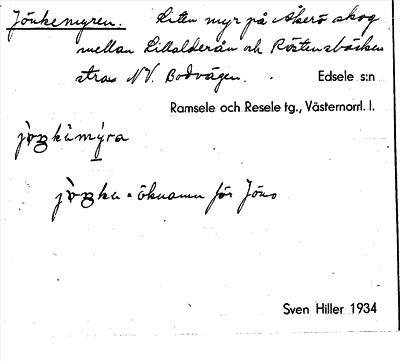 Jönkemyren. Liten myr på Åkerö skog
mellan Lillälderån och Röstensbäcken
strax NV. Bodvägen. Edsele s:n
Ramsele och Resele tg., Västernorrl. l.
öknamn för Jöns
Sven Hiller 1934